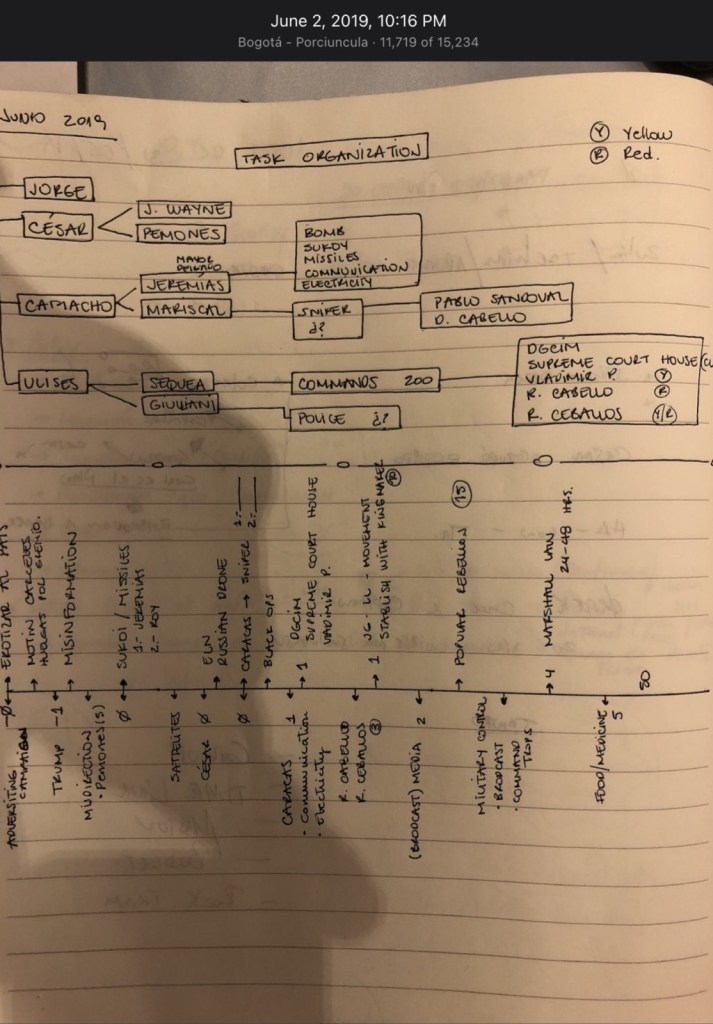 June 2, 2019, 10:16 PM
Bogotá - Porciuncula · 11,719 of 15,234
JUNIO 2019
TASK ORGANIZATION
Ⓨ Yellow
Ⓡ Red.
JORGE
CÉSAR
J. WAYNE
PEMONES
CAMACHO
MAYOR
DELGADO
JEREMÍAS
MARISCAL
BOMB
SUKOY
MISSILES
COMMUNICATION
ELECTRICITY
SNIPER
¿?
PABLO SANDOVAL
D. CABELLO
ULISES
SEQUEA
GIULIANI
COMMANDS 200
POLICE ¿?
DGCIM
SUPREME COURT HOUSE
VLADIMIR P. Ⓨ
R. CABELLO Ⓡ
R. CEBALLOS Y/R
EROTIZAR AL PAÍS
MOTIN CARCELES
HUELGAS POR GREMIO.
MISINFORMATION
SUKOI / MISSILES
1.- JEREMIAS
2.- ROY
ELN
RUSSIAN DRONE
CARACAS → SNIPER 1.-
2.-
BLACK OPS
1 DGCIM
SUPREME COURT HOUSE
VLADIMIR P.
1 JG - LL - MOVEMENT
STABLISH WITH KINGMAKER
POPULAR REBELLION 15
4 MARSHALL LAW
24-48 HRS.
80
-Ø
ADVERSITING
CAMPAIGN
TRUMP -1
MISDIRECTION
· Pemones (5)
Ø
SATTELITES
CÉSAR Ø
Ø
CARACAS 1
· Communication
· Electricity
R. CABELLO
R. CEBALLOS 3
(BRODCAST) MEDIA 2
MILITARY CONTROL
· BRODCAST
· COMMAND
TROPS
FOOD/MEDICINE 5